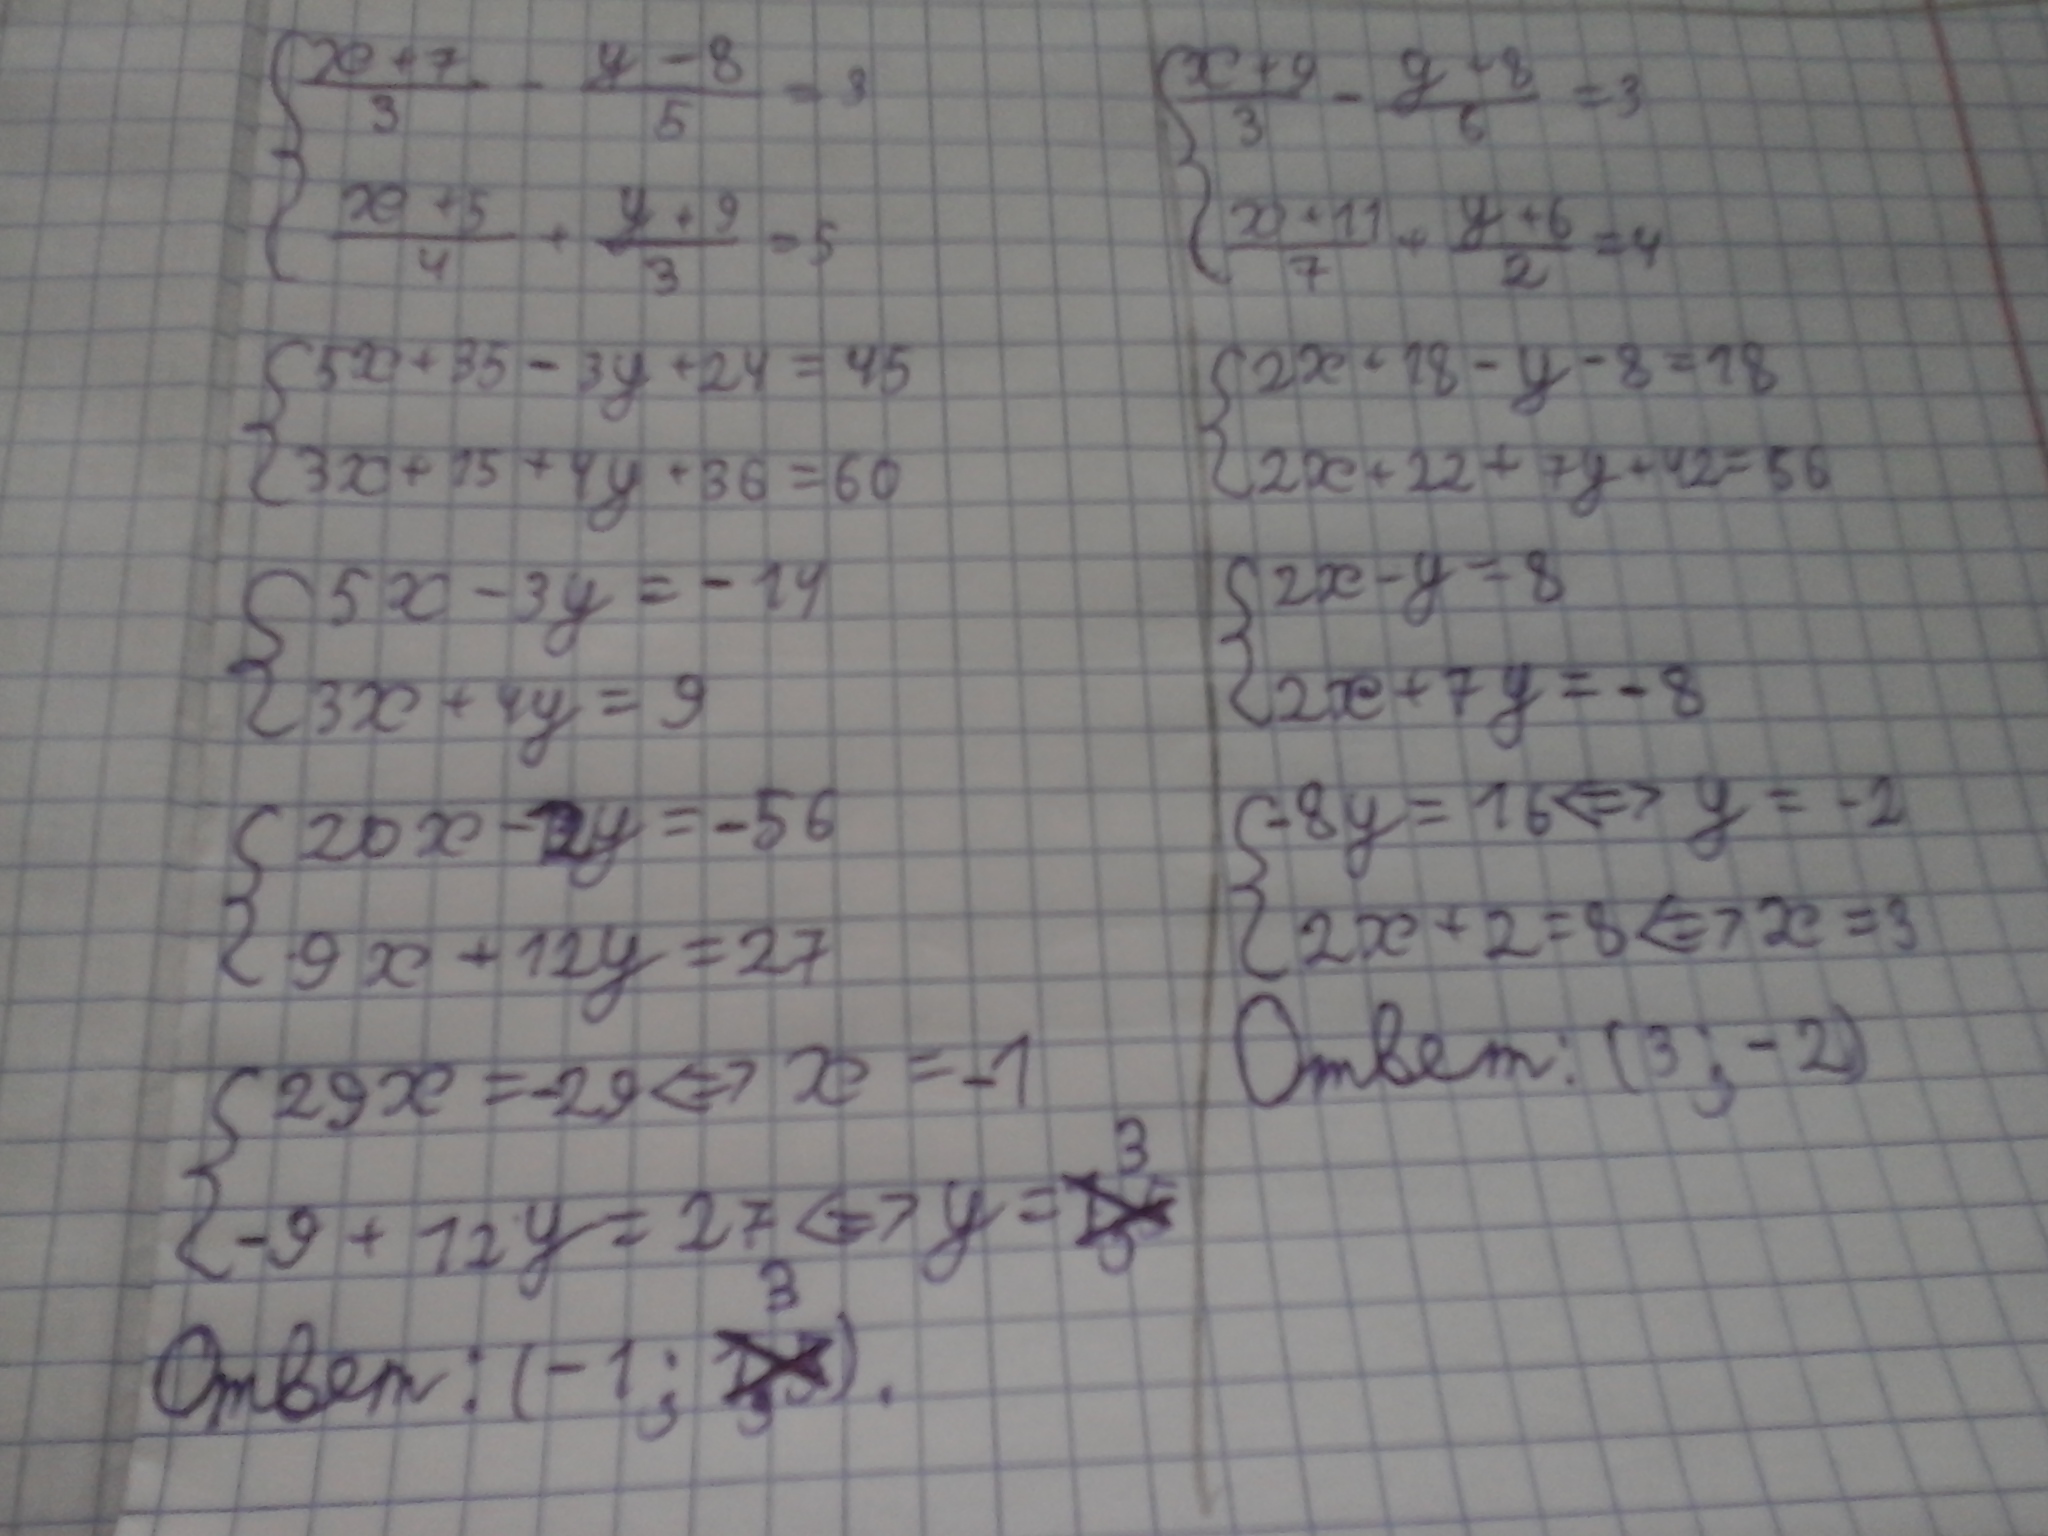 { (x+7)/3 - (y-8)/5 = 3
(x+5)/4 + (y+9)/3 = 5
{ 5x+35-3y+24=45
3x+15+4y+36=60
{ 5x-3y=-14
3x+4y=9
{ 20x-12y=-56
9x+12y=27
{ 29x=-29<=>x=-1
-9+12y=27<=>y=3
Ответ: (-1; 3).
{ (x+9)/3 - (y+8)/6 = 3
(x+11)/7 + (y+6)/2 = 4
{ 2x+18-y-8=18
2x+22+7y+42=56
{ 2x-y=8
2x+7y=-8
{ -8y=16<=>y=-2
2x+2=8<=>x=3
Ответ: (3; -2)